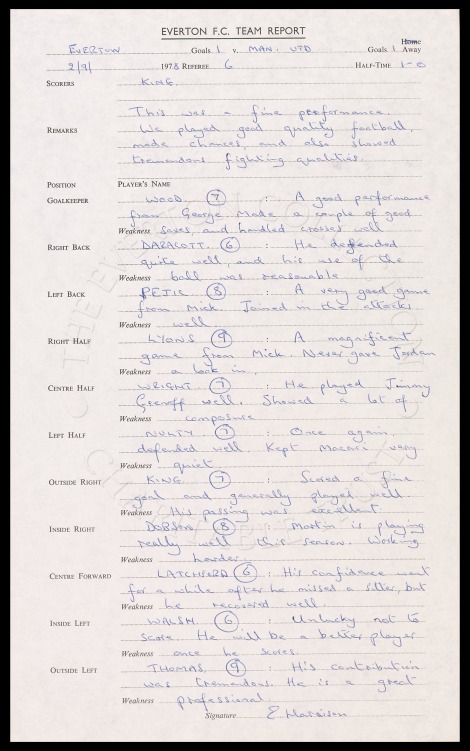 EVERTON F.C. TEAM REPORT
EVERTON Goals 1 v. MAN. UTD Goals 1 Home Away
2/9/ 1978 REFEREE 6 HALF-TIME 1-0
SCORERS KING.
This was a fine performance.
REMARKS We played good quality football,
made chances, and also showed
tremendous fighting qualities.
POSITION PLAYER'S NAME
GOALKEEPER WOOD. 7 : A good performance
from George. Made a couple of good
Weakness saves, and handled crosses well
RIGHT BACK DARACOTT. 6 : He defended
quite well, and his use of the
Weakness ball was reasonable
LEFT BACK PEJIC 8 : A very good game
from Mick. Joined in the attacks
Weakness well
RIGHT HALF LYONS 9 : A magnificent
game from Mick. Never gave Jordan
Weakness a look in.
CENTRE HALF WRIGHT. 7 : He played Jimmy
Greenoff well. Showed a lot of
Weakness composure
LEFT HALF NULTY. 7 : Once again
defended well. Kept Macari very
Weakness quiet
OUTSIDE RIGHT KING. 7 : Scored a fine
goal and generally played well.
Weakness His passing was excellent
INSIDE RIGHT DOBSON. 8 : Martin is playing
really well this season. Working
Weakness harder.
CENTRE FORWARD LATCHFORD 6 : His confidence went
for a while after he missed a sitter, but
Weakness he recovered well.
INSIDE LEFT WALSH. 6 : Unlucky not to
score. He will be a better player
Weakness once he scores.
OUTSIDE LEFT THOMAS. 9 : His contribution
was tremendous. He is a great
Weakness professional.
Signature E Harrison